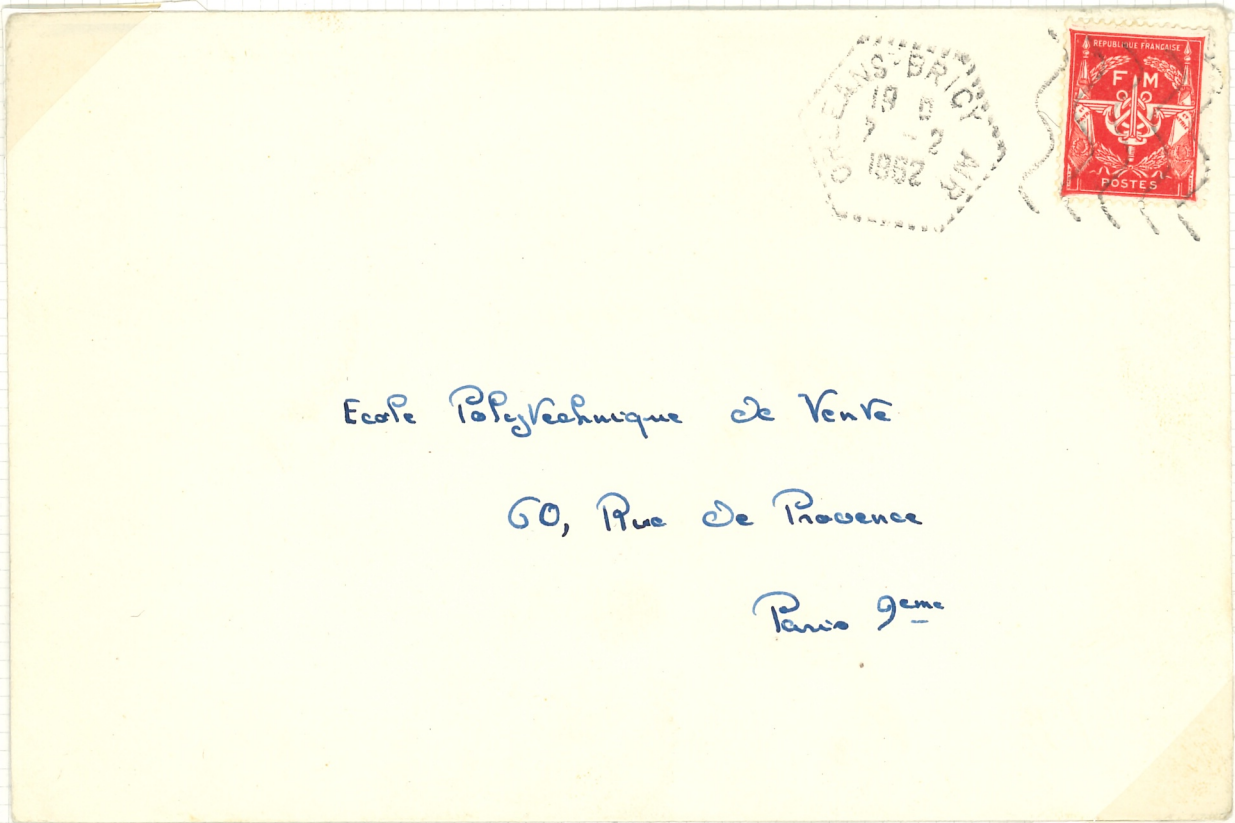 ORLEANS-BRICY AIR
19 H
7 - 2
1962
REPUBLIQUE FRANÇAISE
F M
POSTES
Ecole Polytechnique de Vente
60, Rue de Provence
Paris 9eme